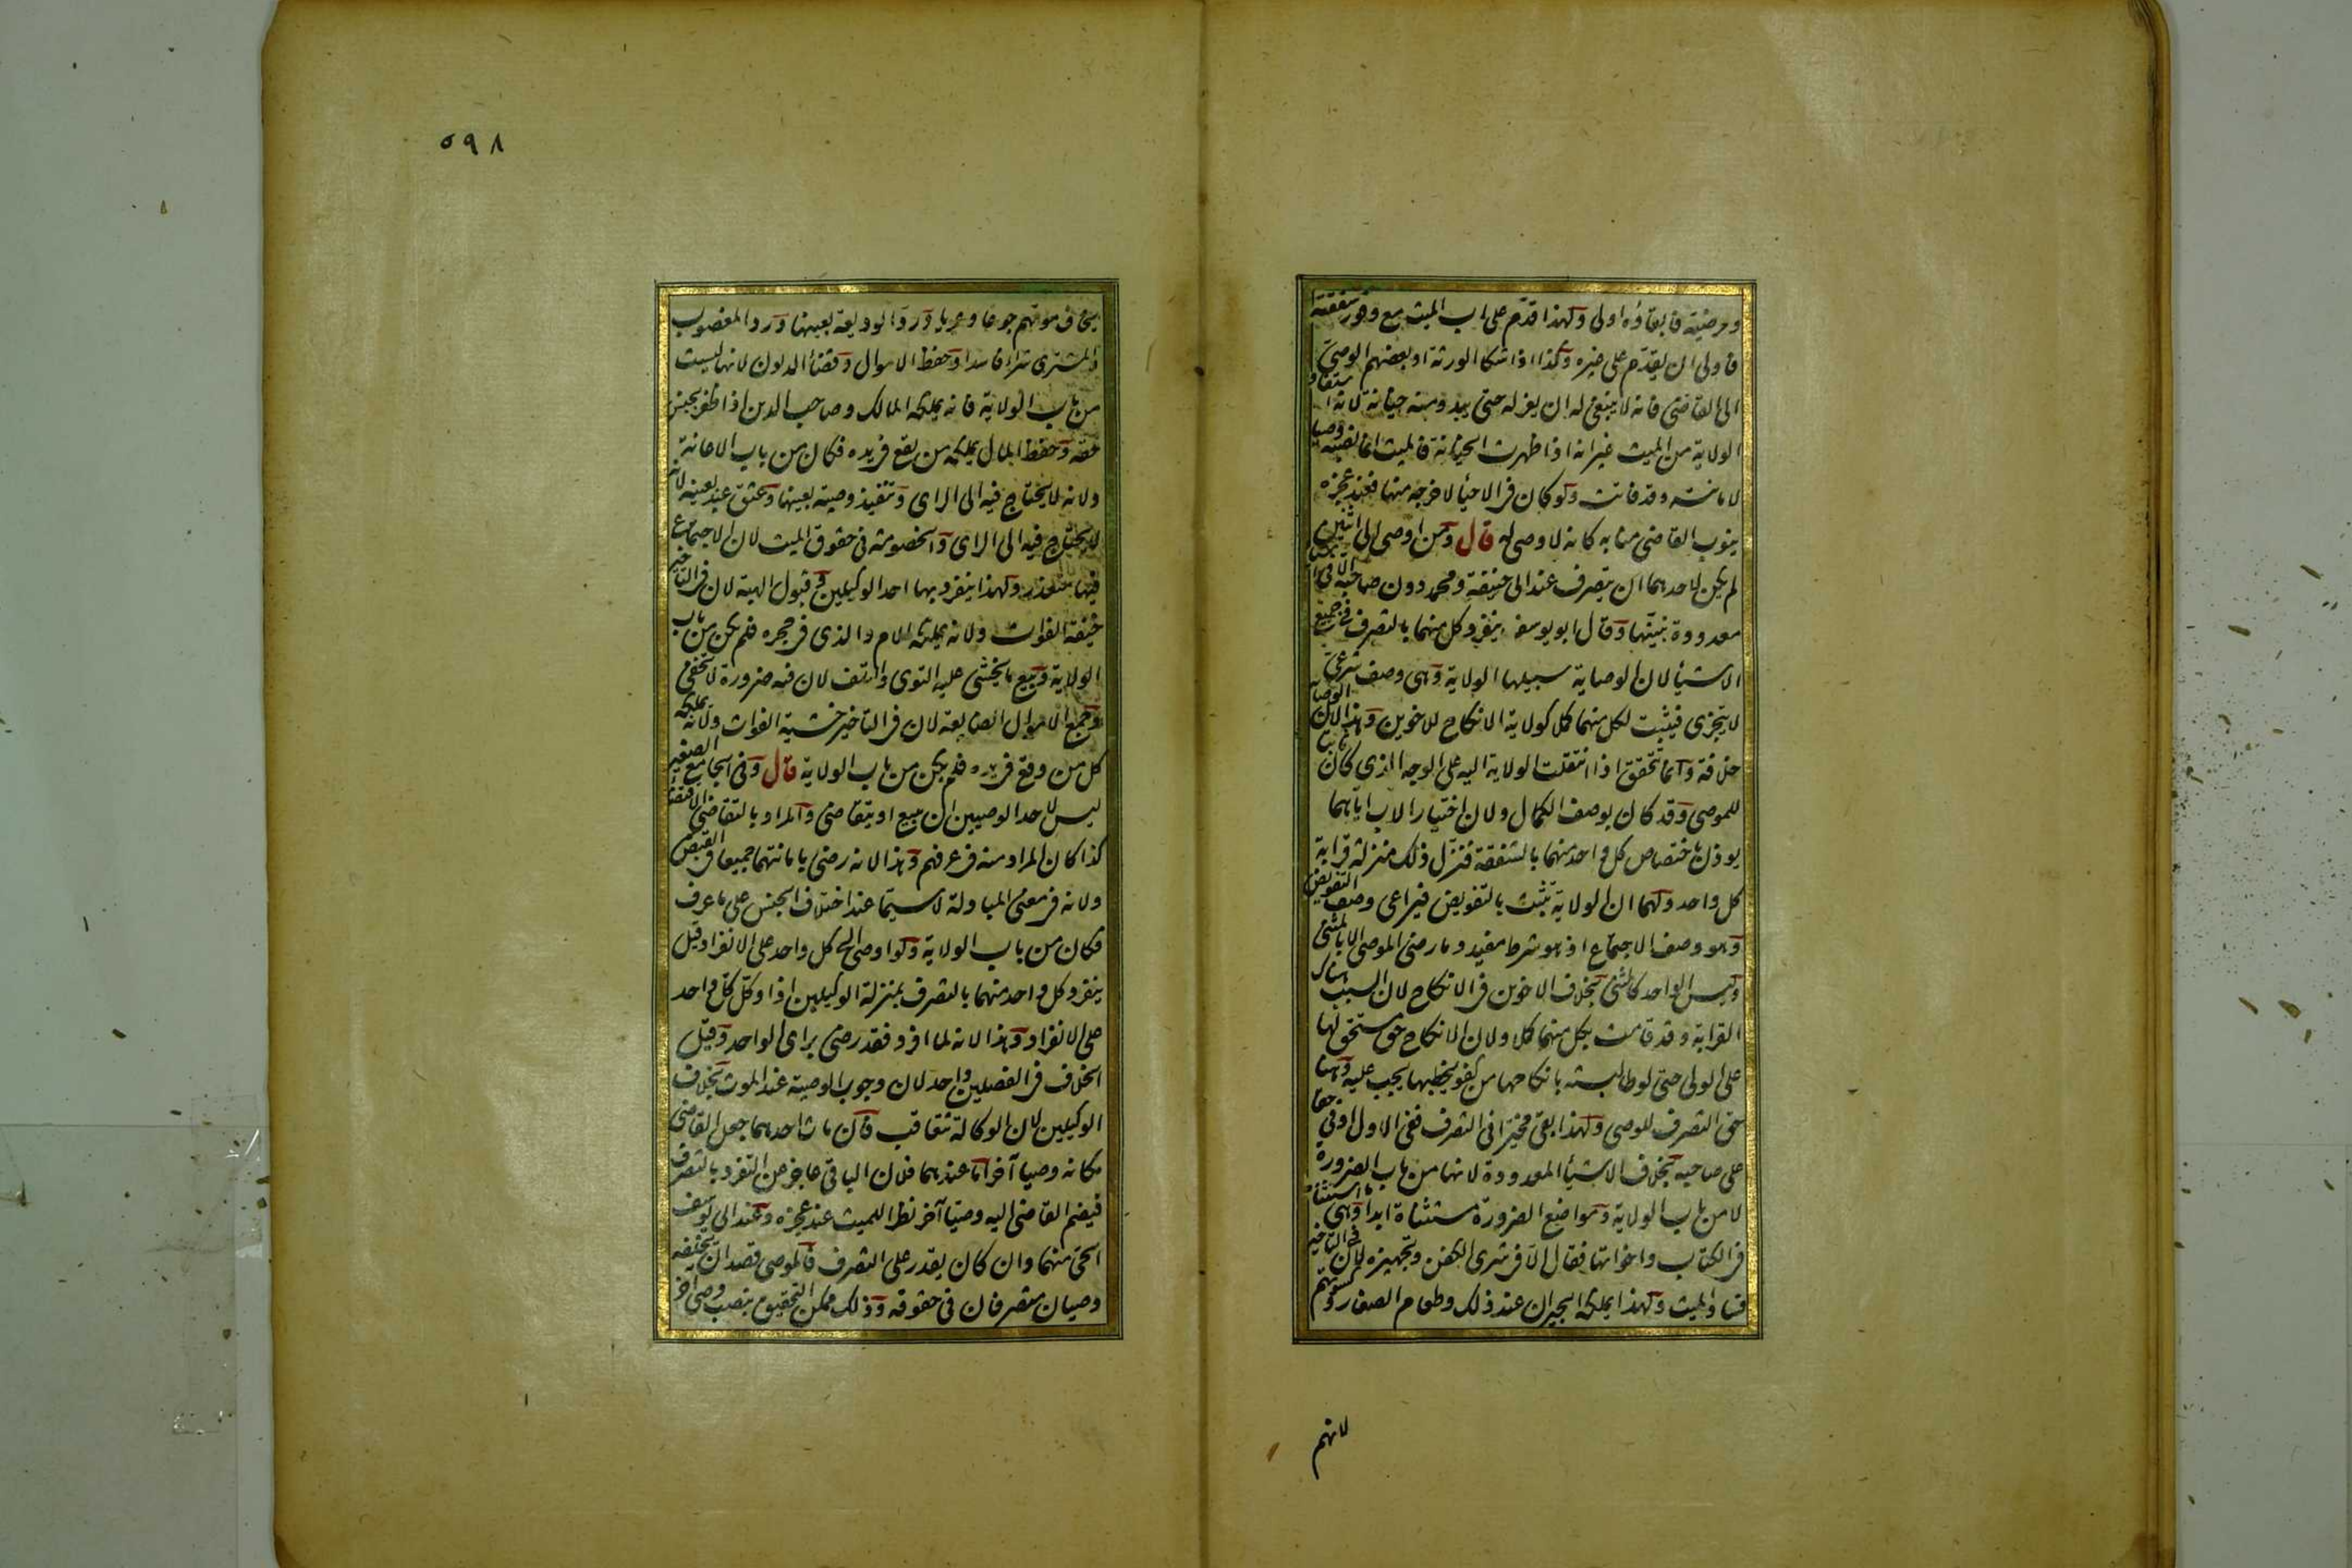 ومرضيه فابقاؤه اولى ولهذا قدم على اب الميت مع وفور شفقته
فاولى ان يقدم على غيره وكذا اذا شكا الورثة او بعضهم الوصي
الى القاضي فانه لا ينبغي له ان يعزله حتى يبدو منه خيانة لانه استفاد
الولاية من الميت غير انه اذا ظهرت الخيانة فالميت انما نصبه وصيا
لامانته وقد فاتت ولو كان في الاحياء لاخرجه منها فعند عجزه
ينوب القاضي منابه كانه لا وصي له قال ومن اوصى الى اثنين
لم يكن لاحدهما ان يتصرف عند ابي حنيفة ومحمد دون صاحبه الا في اشياء
معدودة نبينها وقال ابو يوسف ينفرد كل منهما بالتصرف في جميع
الاشياء لان الوصاية سبيلها الولاية وهي وصف شرعي
لا يتجزى فيثبت لكل منهما كملا كولاية الانكاح للاخوين وهذا لان الوصاية
خلافة وانما تتحقق اذا انتقلت الولاية اليه على الوجه الذي كان ثابتا
للموصي وقد كان بوصف الكمال ولان اختيار الاب اياهما
يوذن باختصاص كل واحد منهما بالشفقة فنزل ذلك منزلة قرابة
كل واحد ولهما ان الولاية تثبت بالتفويض فيراعى وصف التفويض
وهو وصف الاجتماع اذ هو شرط مفيد وما رضي الموصي الا بالمثنى
وليس الواحد كالمثنى بخلاف الاخوين في الانكاح لان السبب هناك
القرابة وقد قامت بكل منهما كملا ولان الانكاح حق مستحق لها
على الولي حتى لو طالبته بانكاحها من كفو يخطبها يجب عليه وههنا
حق التصرف للوصي ولهذا بقي مخيرا في التصرف ففي الاول اوفى حقا
على صاحبه بخلاف الاشياء المعدودة لانها من باب الضرورة
لا من باب الولاية ومواضع الضرورة مستثناة ابدا وهي ما استثناه
في الكتاب واخواتها فقال الا في شرى الكفن وتجهيزه لان في التاخير
فساد الميت ولهذا يملكه الجيران عند ذلك وطعام الصغار وكسوتهم
لانهم
٥٩٨
يخاف موتهم جوعا وعريا ورد الوديعة بعينها ورد المغصوب
والمشترى شراء فاسدا وحفظ الاموال وقضاء الديون لانها ليست
من باب الولاية فانه يملكه المالك وصاحب الدين اذا ظفر بجنس
حقه وحفظ المال يملكه من يقع في يده فكان من باب الاعانة
ولانه لا يحتاج فيه الى الراي وتنفيذ وصية بعينها وعتق عبد بعينه لانه
لا يحتاج فيه الى الراي والخصومة في حقوق الميت لان الاجتماع
فيها متعذر ولهذا ينفرد بها احد الوكيلين وقبول الهبة لان في التاخير
خيفة الفوات ولانه يملكه الام والذي في حجره فلم يكن من باب
الولاية وبيع ما يخشى عليه التوى والتلف لان فيه ضرورة لا تخفى
وجمع الاموال الضايعة لان في التاخير خشية الفوات ولانه يملكه
كل من وقع في يده فلم يكن من باب الولاية قال وفي الجامع الصغير
ليس لاحد الوصيين ان يبيع او يتقاضى والمراد بالتقاضي الاقتضاء
كذا كان المراد منه في عرفهم وهذا لانه رضي بامانتهما جميعا في القبض
ولانه في معنى المبادلة لا سيما عند اختلاف الجنس على ما عرف
فكان من باب الولاية ولو اوصى الى كل واحد على الانفراد قيل
ينفرد كل واحد منهما بالتصرف بمنزلة الوكيلين اذا وكل كل واحد
على الانفراد وهذا لانه لما افرد فقد رضي براي الواحد وقيل
الخلاف في الفصلين واحد لان وجوب الوصية عند الموت بخلاف
الوكيلين لان الوكالة تتعاقب فان مات احدهما جعل القاضي
مكانه وصيا آخر اما عندهما فلان الباقي عاجز عن التفرد بالتصرف
فيضم القاضي اليه وصيا آخر نظرا للميت عند عجزه وعند ابي يوسف
الحي منهما وان كان يقدر على التصرف فالموصي قصد ان يخلفه
وصيان متصرفان في حقوقه وذلك ممكن التحقيق بنصب وصي آخر